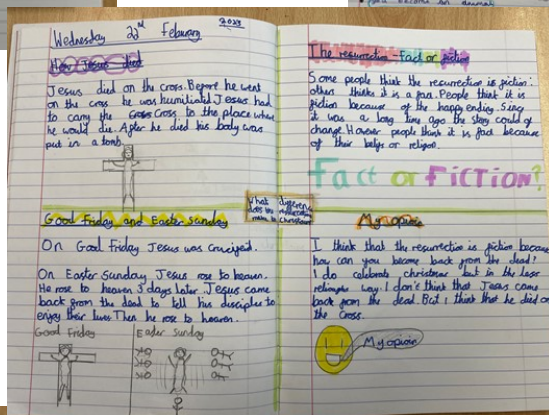 Wednesday 22nd February 2023
How Jesus died
Jesus died on the cross. Before he went
on the cross he was humiliated Jesus had
to carry the Cross to the place where
he would die. After he died his body was
put in a tomb.
Good Friday and Easter Sunday
On Good Friday Jesus was crucified.
On Easter Sunday Jesus rose to heaven.
He rose to heaven 3 days later. Jesus came
back from the dead to tell his disciples to
enjoy their lives. Then he rose to heaven.
Good Friday
Easter Sunday
What
does the
make to Christians
The resurrection - Fact or fiction
Some people think the resurrection is fiction:
others thinks it is a fact. People think it is
fiction because of the happy ending. Since
it was a long time ago the story could of
change. However people think it is fact because
of their or religion.
Fact or FiCTiON?
My opinion
I think that the resurrection is fiction because
how can you become back from the dead?
I do celebrate christmas but in the less
way. I don't think that Jesus came
back from the dead. But I think that he died on
the cross.
My opinion